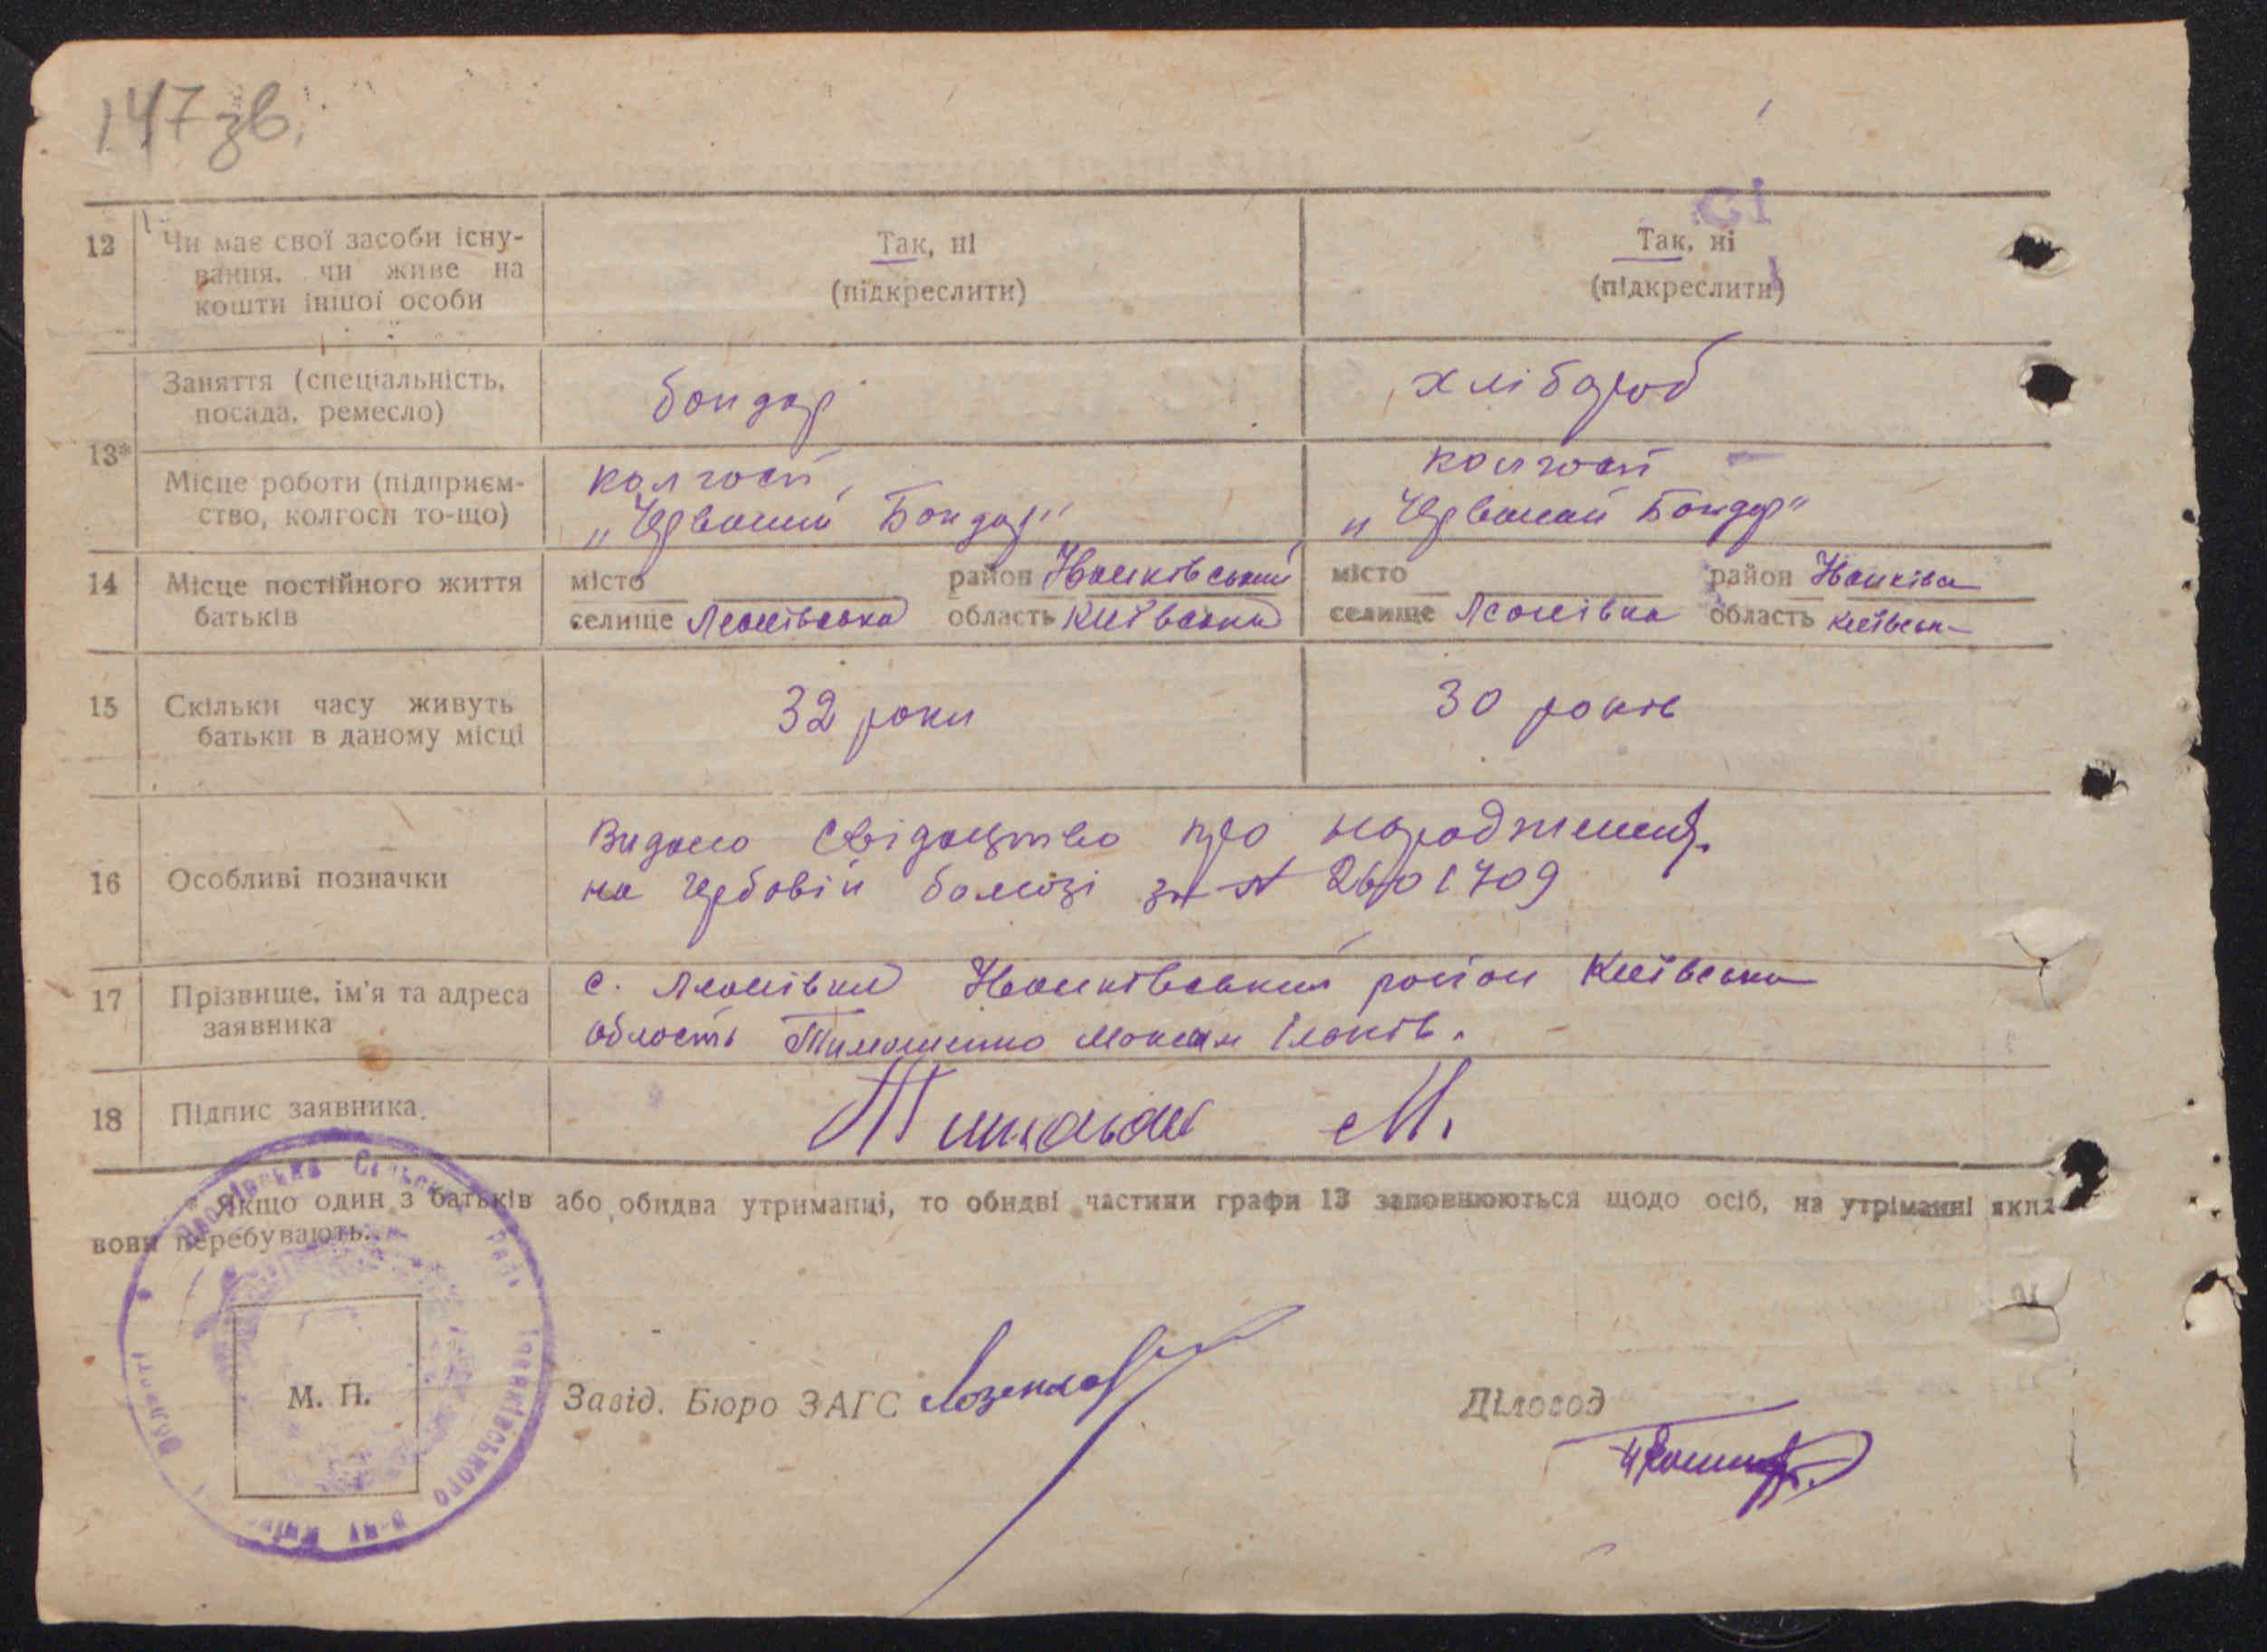 147 зв.
12 Чи має свої засоби існу-
вання, чи живе на
кошти іншої особи
Так, ні
(підкреслити)
Так, ні
(підкреслити)
13*
Заняття (спеціальність,
посада, ремесло)
бондар
хлібороб
Місце роботи (підприєм-
ство, колгосп то-що)
колгосп
„Червоний Бондар"
колгосп
„Червоний Бондар"
14 Місце постійного життя
батьків
місто район Іванківський
селище Леонівська область Київська
місто район Іванківс
селище Леонівка область Київськ
15 Скільки часу живуть
батьки в даному місці
32 роки
30 років
16 Особливі позначки
Видано свідоцтво про народження
на гербовій бомозі за № 2601709
17 Прізвище, ім'я та адреса
заявника
с. Леонівка Іванківський район Київська
область Тимошенко Максим
18 Підпис заявника
М.
Якщо один з батьків або обидва утриманці, то обидві частини графи 13 заповнюються щодо осіб, на утріманні яких
вони перебувають.
М. П.
Завід. Бюро ЗАГС
Діловод
Іванківського р-ну